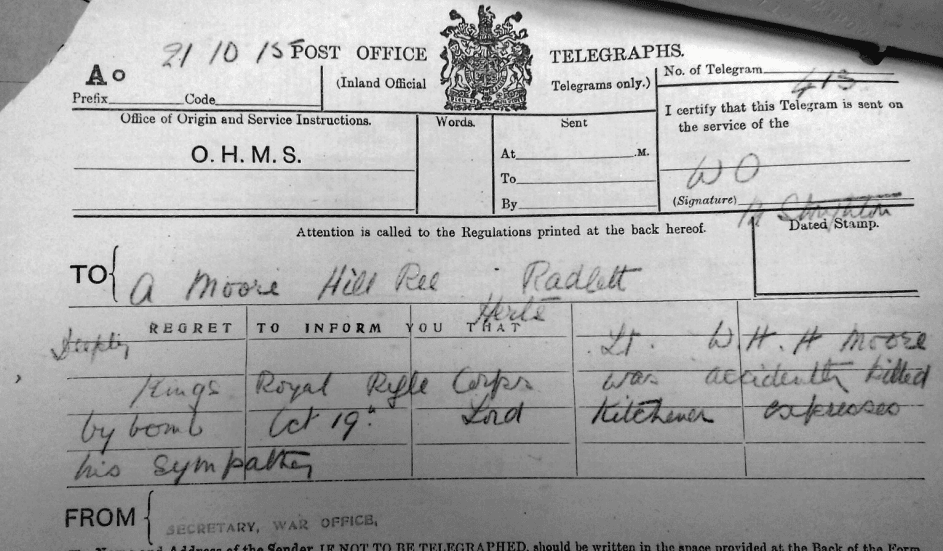 21 10 15 POST OFFICE TELEGRAPHS.
(Inland Official Telegrams only.)
A o
Prefix Code
No. of Telegram 413
Office of Origin and Service Instructions.
Words.
Sent
I certify that this Telegram is sent on
the service of the
O. H. M. S.
At .M.
To
By
W O
(Signature)
Attention is called to the Regulations printed at the back hereof.
Dated Stamp.
TO A Moore Hill Radlett
Herts
Deeply REGRET TO INFORM YOU THAT Lt. W H. H Moore
Kings Royal Rifle Corps was accidently killed
by bomb Oct 19th Lord Kitchener expresses
his sympathy
FROM SECRETARY, WAR OFFICE,
Name and Address of the Sender, IF NOT TO BE TELEGRAPHED, should be written in the space provided at the Back of the Form